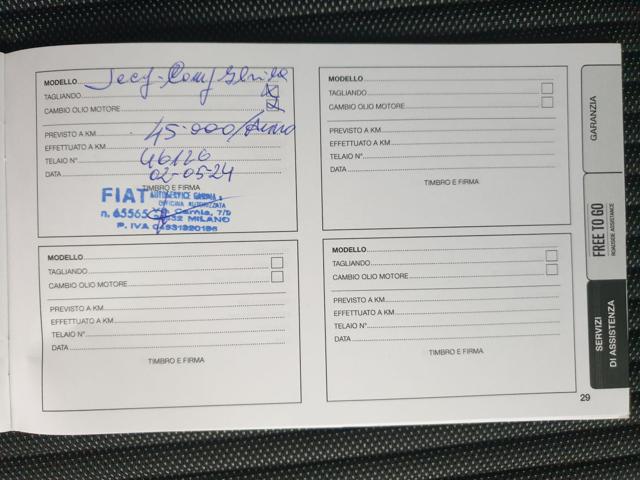 MODELLO
TAGLIANDO
CAMBIO OLIO MOTORE
PREVISTO A KM 45.000/Anno
EFFETTUATO A KM 46126
TELAIO N°
DATA 02-05-24
TIMBRO E FIRMA
FIAT AUTOSERVICE
OFFICINA AUTORIZZATA
n. 65565 Carnia, 7/9
MILANO
P. IVA
MODELLO
TAGLIANDO
CAMBIO OLIO MOTORE
PREVISTO A KM
EFFETTUATO A KM
TELAIO N°
DATA
TIMBRO E FIRMA
MODELLO
TAGLIANDO
CAMBIO OLIO MOTORE
PREVISTO A KM
EFFETTUATO A KM
TELAIO N°
DATA
TIMBRO E FIRMA
MODELLO
TAGLIANDO
CAMBIO OLIO MOTORE
PREVISTO A KM
EFFETTUATO A KM
TELAIO N°
DATA
TIMBRO E FIRMA
GARANZIA
FREE TO GO
ROADSIDE ASSISTANCE
SERVIZI
DI ASSISTENZA
29